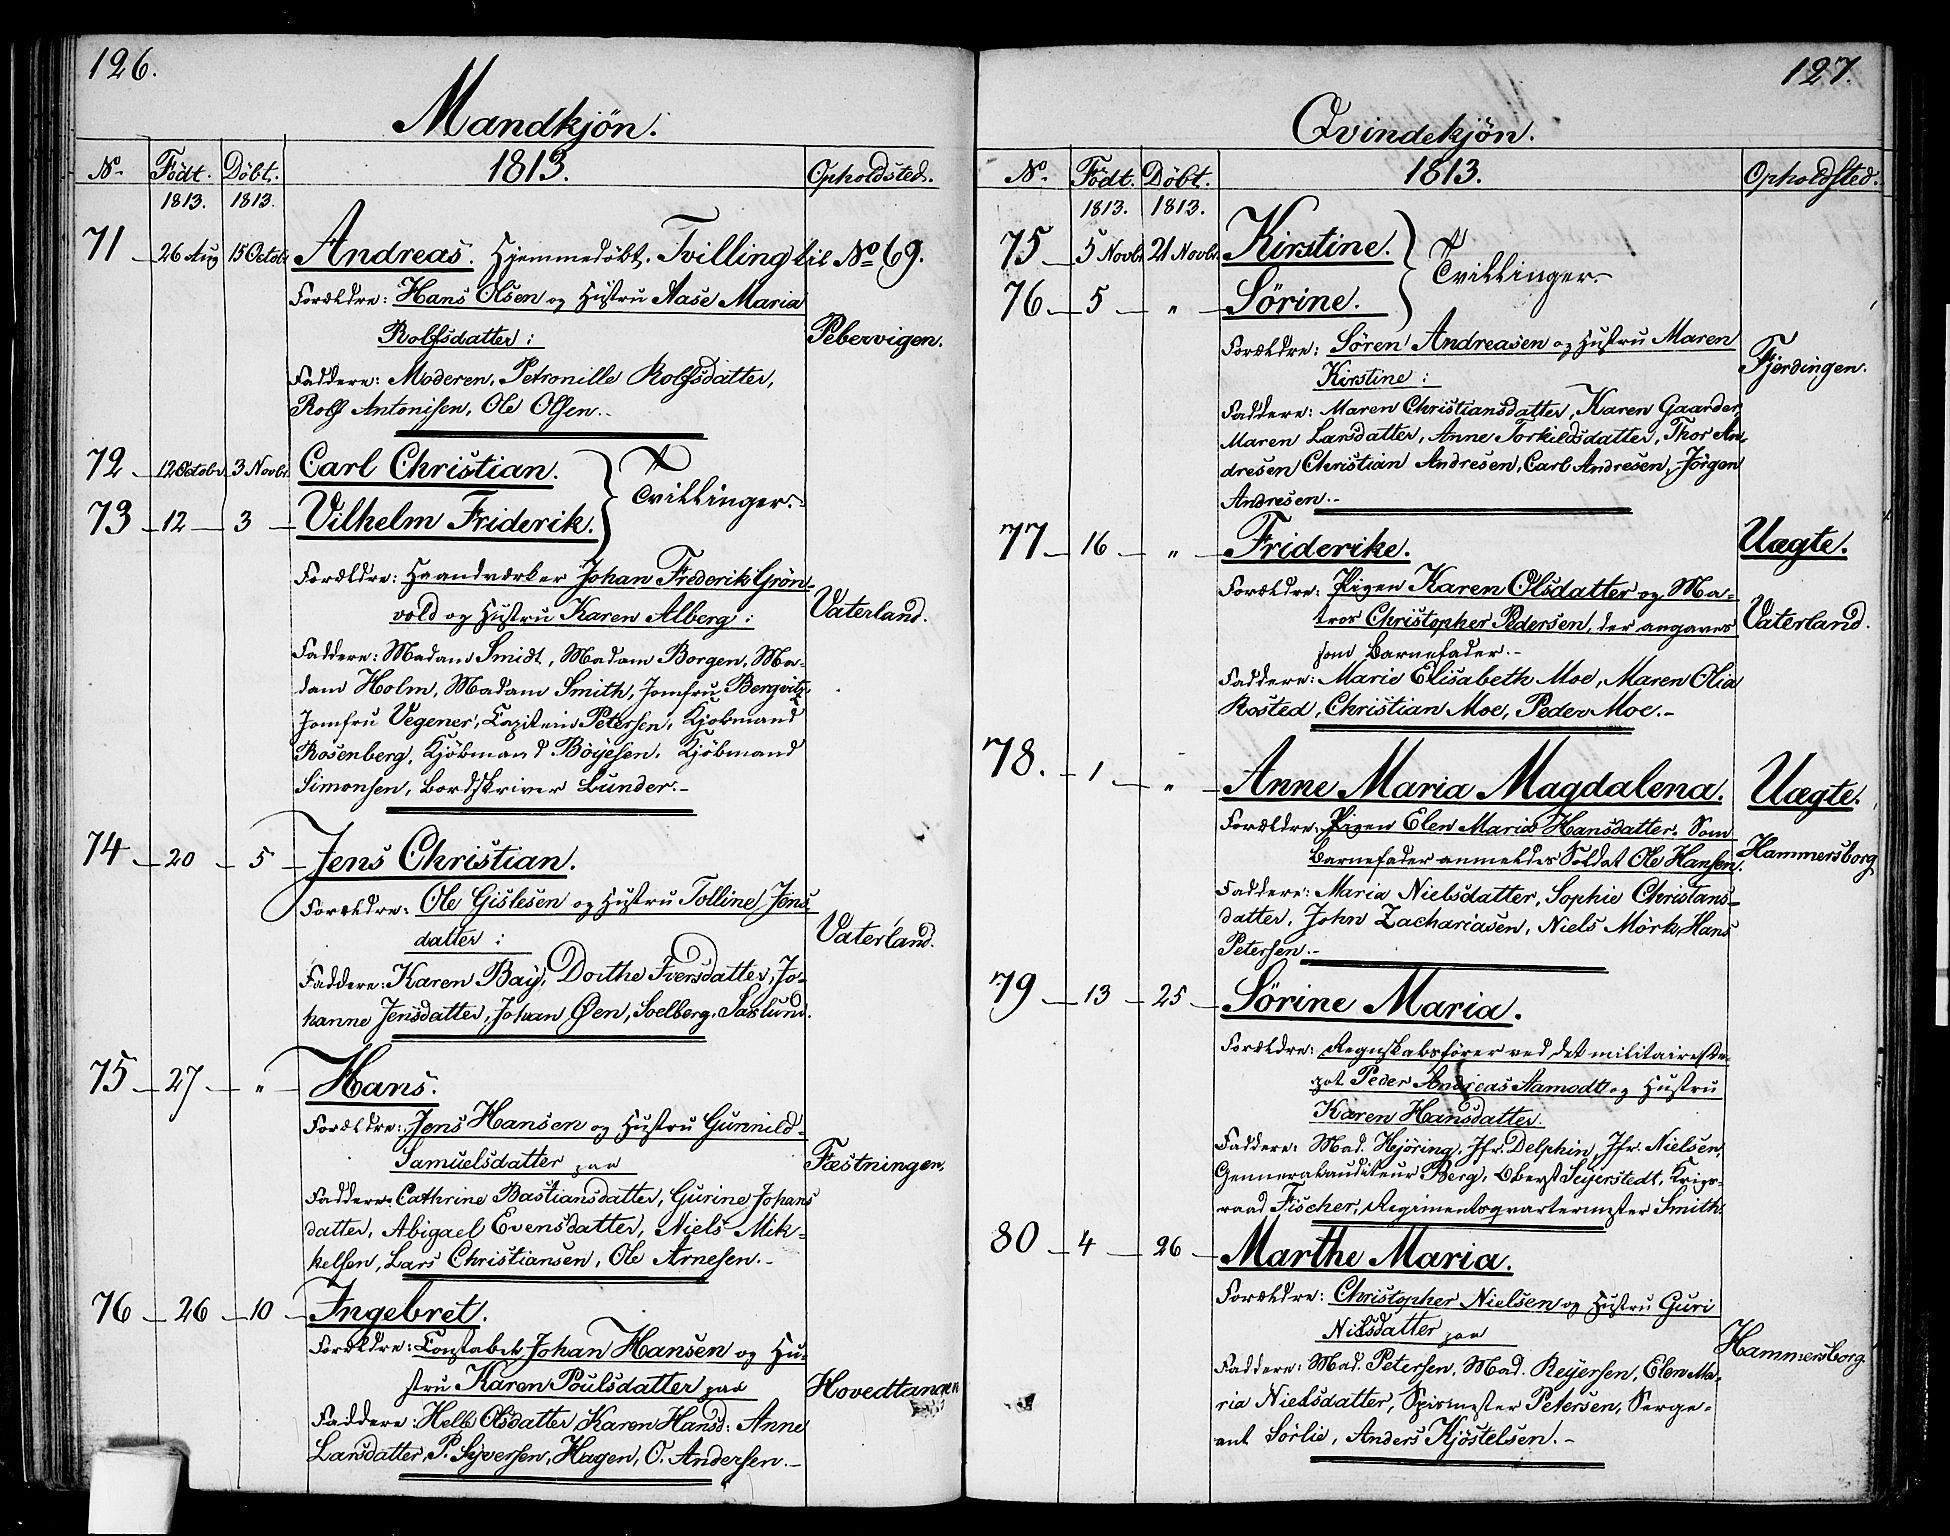 126.
Mandkjön.
No. Födt. Döbt. 1813. Opholdsted.
1813. 1813.
71 26 Aug 15 Octobr Andreas. Hjemmedöbt. Tvilling til No 69.
Forældre: Hans Olsen og Hustru Aase Maria
Rolfsdatter: Pebervigen.
Faddere: Moderen, Petronille Rolfsdatter,
Rolf Antonisen, Ole Olsen.
72 12 Octobr. 3 Novbr. Carl Christian.
Tvillinger.
73 12 3 Vilhelm Friderik.
Forældre: Haandværker Johan Frederik Grön-
vold og Hustru Karen Alberg: Vaterland.
Faddere: Madam Smidt, Madam Borgen, Ma-
dam Holm, Madam Smith, Jomfru Bergvitz,
Jomfru Vegener, Capitein Petersen, Kjöbmand
Rosenberg, Kjöbmand Böyesen, Kjöbmand
Simonsen, Bordskriver Bunder.
74 20 5 Jens Christian.
Forældre: Ole Gislesen og Hustru Tolline Jens
datter: Vaterland.
Faddere: Karen Bay, Dorthe Iversdatter, Jo-
hanne Jensdatter, Johan Øen, Soelberg, Saxlund.
75 27 " Hans.
Forældre: Jens Hansen og Hustru Gunnild
Samuelsdatter paa Fæstningen.
Faddere: Cathrine Bastiansdatter, Gurine Johans
datter, Abigael Evensdatter, Niels Mik-
kelsen, Lars Christiansen, Ole Arnesen.
76 26 10 Ingebret.
Forældre: Constabel Johan Hansen og Hu-
stru Karen Poulsdatter paa Hovedtangen
Faddere: Helle Olsdatter, Karen Hansd: Anne
Larsdatter, P. Syversen, Hagen, O. Andersen.
127.
Qvindekjön.
No. Födt. Döbt. 1813. Opholdsted.
1813. 1813.
75 5 Novbr. 21 Novbr. Kirstine.
Tvillinger.
76 5 " Sörine.
Forældre: Sören Andreasen og Hustru Maren
Kirstine: Fjerdingen.
Faddere: Maren Christiansdatter, Karen Gaarder,
Maren Larsdatter, Anne Torkildsdatter, Thor An-
dresen Christian Andresen, Carl Andresen, Jörgen
Andresen.
77 16 " Friderike. Uægte.
Forældre: Pigen Karen Olsdatter og Ma-
tros Christopher Pedersen, der angaves Vaterland.
som Barnefader.
Faddere: Marie Elisabeth Moe, Maren Olia
Rosted, Christian Moe, Peder Moe.
78. 1 " Anne Maria Magdalena. Uægte.
Forældre: Pigen Elen Maria Hansdatter. Som
Barnefader anmeldes Soldat Ole Hansen. Hammersborg
Faddere: Maria Nielsdatter, Sophie Christans-
datter, John Zachariasen, Niels Mörk, Hans
Petersen.
79 13 25 Sörine Maria.
Forældre: Regnskabsförer ved det militaire de-
pot Peder Andreas Aamodt og Hustru
Karen Hansdatter.
Faddere: Mad. Hjöring, Jfr. Delphin, Jfr. Nielsen,
Gennerakauditeur Berg, Oberst Seyerstedt, Krigs-
raad Fischer, Regimentsqvartermester Smith
80 4 26 Marthe Maria.
Forældre: Christopher Nielsen og Hustru Guri
Nilsdatter paa Hammersborg
Faddere: Mad. Petersen, Mad. Reyersen, Elen Ma-
ria Nielsdatter, Petersen, Serge-
ant Sörlie, Anders Kjöstelsen.